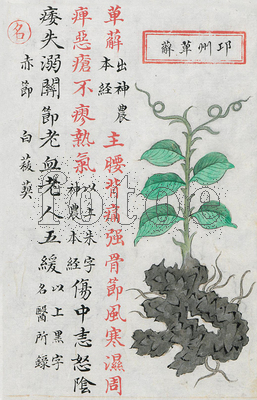 邛州萆薢
萆薢出神農本經主腰背痛强骨節風寒濕周
痺惡瘡不瘳熱氣以上朱字神農本經傷中恚怒陰
痿失溺關節老血老人五緩以上黑字名醫所錄
名 赤節 白菝葜